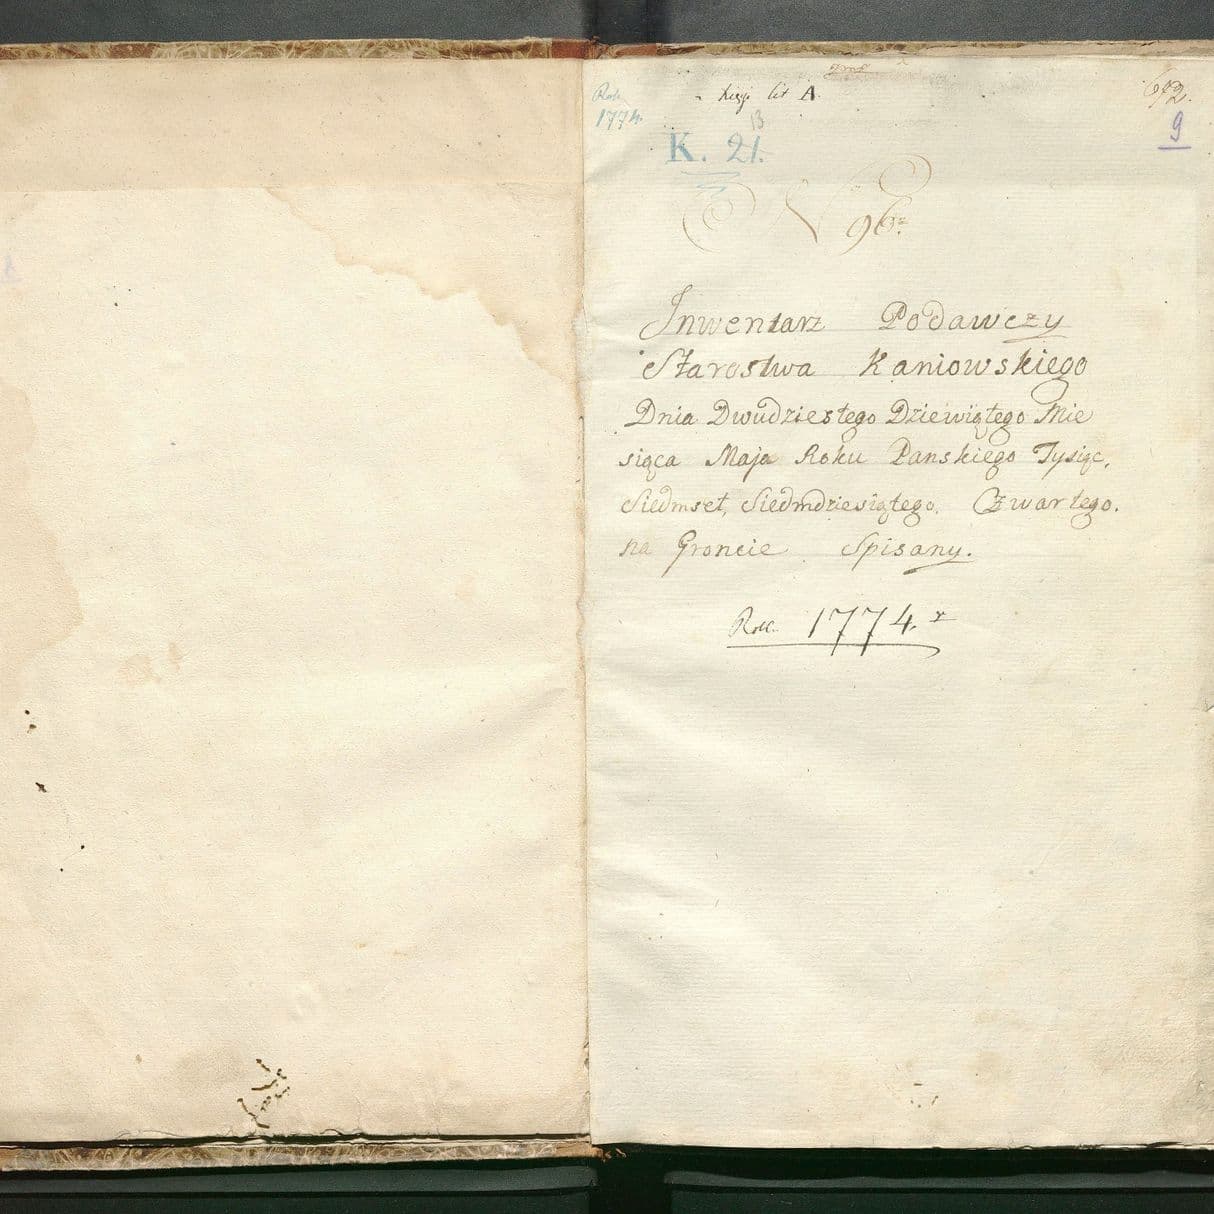 Rok
1774.
Xięgi lit A.
692.
9
13
K. 21.
No 96.
Inwentarz Podawczy
Starostwa Kaniowskiego
Dnia Dwudziestego Dziewiątego Mie
siąca Maja Roku Panskiego Tysiąc,
Siedmset, Siedmdziesiątego. Czwartego.
na Groncie Spisany.
Rok. 1774.